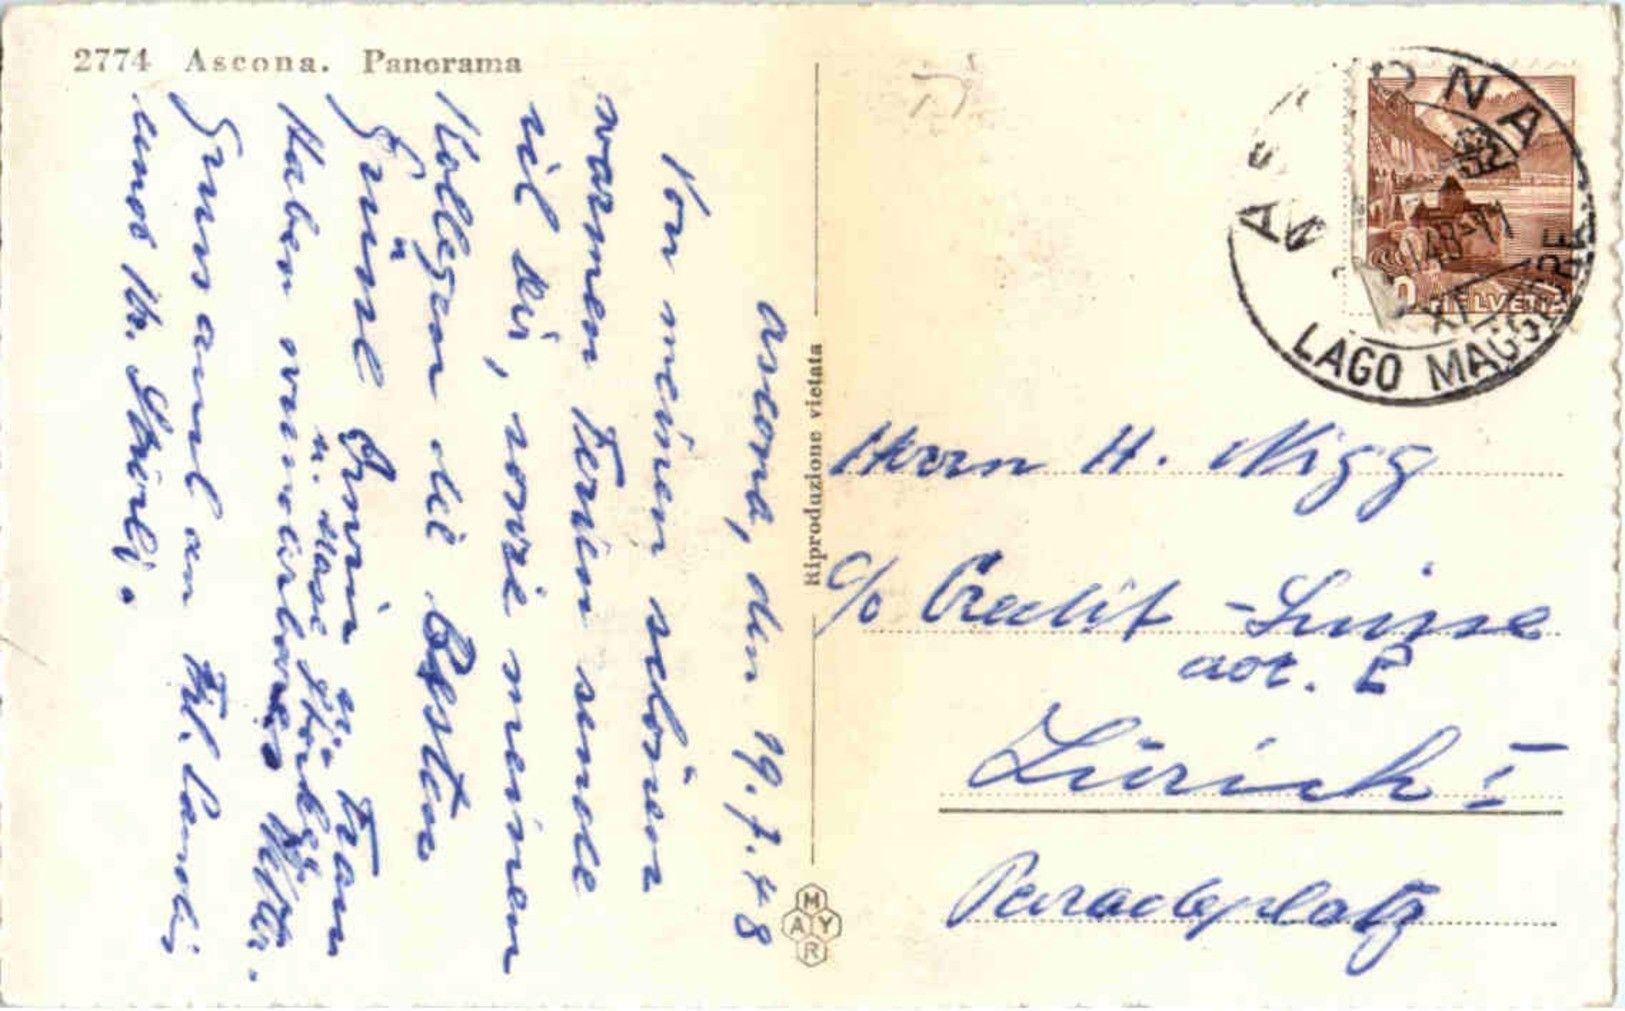 2774 Ascona. Panorama
Ascona, den 19. 7. 48
Von meinen schönen
warmen Ferien sende
dir, sowie meinen
Kollegen die Besten
Grüsse Erwin
u. Frau
Haben wunderbares Wetter.
Gruss auch an Frl. Landi
und Hr.
Riproduzione vietata
MAYR
ASCONA
LAGO MAGGIORE
HELVETIA
Herrn H. Nigg
c/o Credit-Suisse
Zürich 1
Paradeplatz